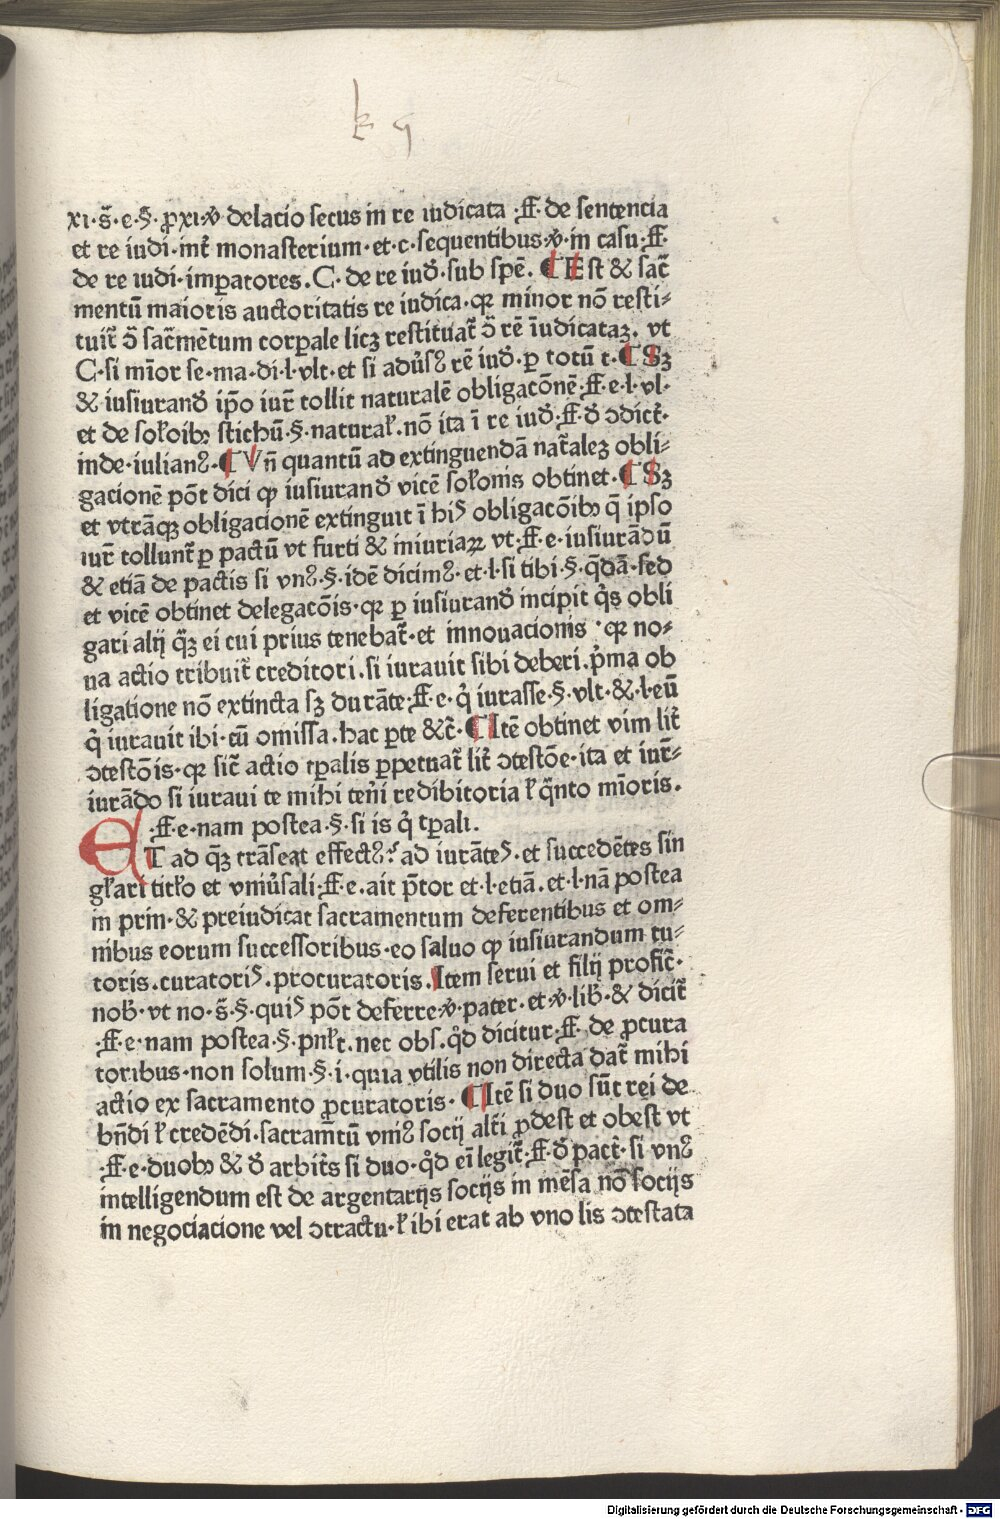 k 9
xi·s̃·e·§·ꝓxi·v̉ delacio secus in re iudicata ·ff· de sentencia
et re iudi·int̃ monasterium·et·c·sequentibus·v̉·in casu·ff·
de re iudi·imperatores. C·de re iud̕·sub spē. ¶ Est & sac̃
mentū maioris auctoritatis re iudica·qꝛ minor nō resti⸗
tuit̃ ō̄ sac̃mētum corꝑale licꝫ restituat̃ ō̄ rē iudicataꝫ. vt
C·si mīor se·ma·di·l·vlt·et si adu̓sꝰ rē iud̕·ꝑ totū t·¶ Sꝫ
& iusiurand̕ ip̄o iur̃ tollit naturalē obligacōnē·ff·e·l·vl·
et de soƚoibꝫ stichū·§·naturaƚ.nō ita ī re iud̕·ff·d̕ ↄdict̃·
inde·iulianꝰ·¶ Vn̄ quantū ad extinguendā nat̃alez obli⸗
gacionē pōt dici ꝙ iusiurand̕ vicē soƚonis obtinet·¶ Sꝫ
et vtrāqꝫ obligacionē extinguit ī his obligacōibꝫ q̄ ipso
iur̃ tollunt̃ ꝑ pactū vt furti & iniuriaꝝ vt·ff·e·iusiurādū
& etiā de pactis si vnꝰ·§·idē dicimꝰ·et·l·si tibi·§·q̄dā·sed
et vicē obtinet delegacōis·qꝛ ꝑ iusiurand̕ incipit q̓s obli
gari alij q̄ꝫ ei cui prius tenebat̃·et innouacionis ·qꝛ no⸗
ua actio tribuit̃ creditori.si iurauit sibi deberi.p̓ma ob
ligatione nō extincta sꝫ durāte·ff·e·q̓ iurasse·§·vlt·&·l·eū
q̓ iurauit ibi·cū omissa.hac ꝑte &c̃·¶ Itē obtinet vim lit̃
ↄtestōis·qꝛ sic̃ actio tꝑalis ꝑpetuat̃ lit̃ ↄtestōe·ita et iur̃⸗
iurādo si iuraui te mihi ten̓i redibitoria ƚ q̄nto mīoris.
·ff·e·nam postea·§·si is q̓ tꝑali.
ET ad q̄ꝫ trāseat effectꝰ? ad iurātes·et succedētes sin
gƚari titƚo et vniu̓sali·ff·e·ait p̄tor et·l·etiā.et·l·nā postea
in prin·& preiudicat sacramentum deferentibus et om⸗
nibus eorum successoribus·eo saluo ꝙ iusiurandum tu⸗
toris.curatoris.procuratoris.Item serui et filij profic̃·
nob̕·vt no·s̃·§·quis pōt deferre·v̉·pater·et·v̉·lib̕·& dicit̃
·ff·e·nam postea·§·pnƚt.nec obs.q̊d dicitur·ff· de ꝓcura
toribus·non solum·§·i·quia vtilis non directa dat̃ mihi
actio ex sacramento ꝓcuratoris·¶ Itē si duo sūt rei de
bn̄di ƚ credēdi·sacram̄tū vniꝰ socij alt̓i ꝓdest et obest vt
·ff·e·duobꝫ & d̕ arbit̃s si duo·q̊d eī legit̃·ff·d̕ pact̃·si vnꝰ
intelligendum est de argentarijs socijs in mēsa nō socijs
in negociacione vel ↄtractu·ƚ ibi erat ab vno lis ↄtestata
Digitalisierung gefördert durch die Deutsche Forschungsgemeinschaft - DFG